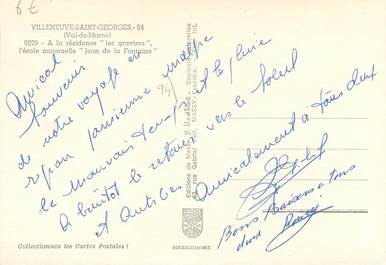 6€
VILLENEUVE-SAINT-GEORGES - 94
(Val-de-Marne)
8029 - A la résidence "les graviers",
l'école maternelle "Jean de la Fontaine"
94
Amical
souvenir
de notre voyage en
région parisienne malgré
le mauvais temps et la pluie
A bientôt le retour vers le Soleil
et Antibes
Amicalement à tous deux
Bons Baisers à tous
deux
Editions de Mary
MEXICHROME
Collectionnez les Cartes Postales !